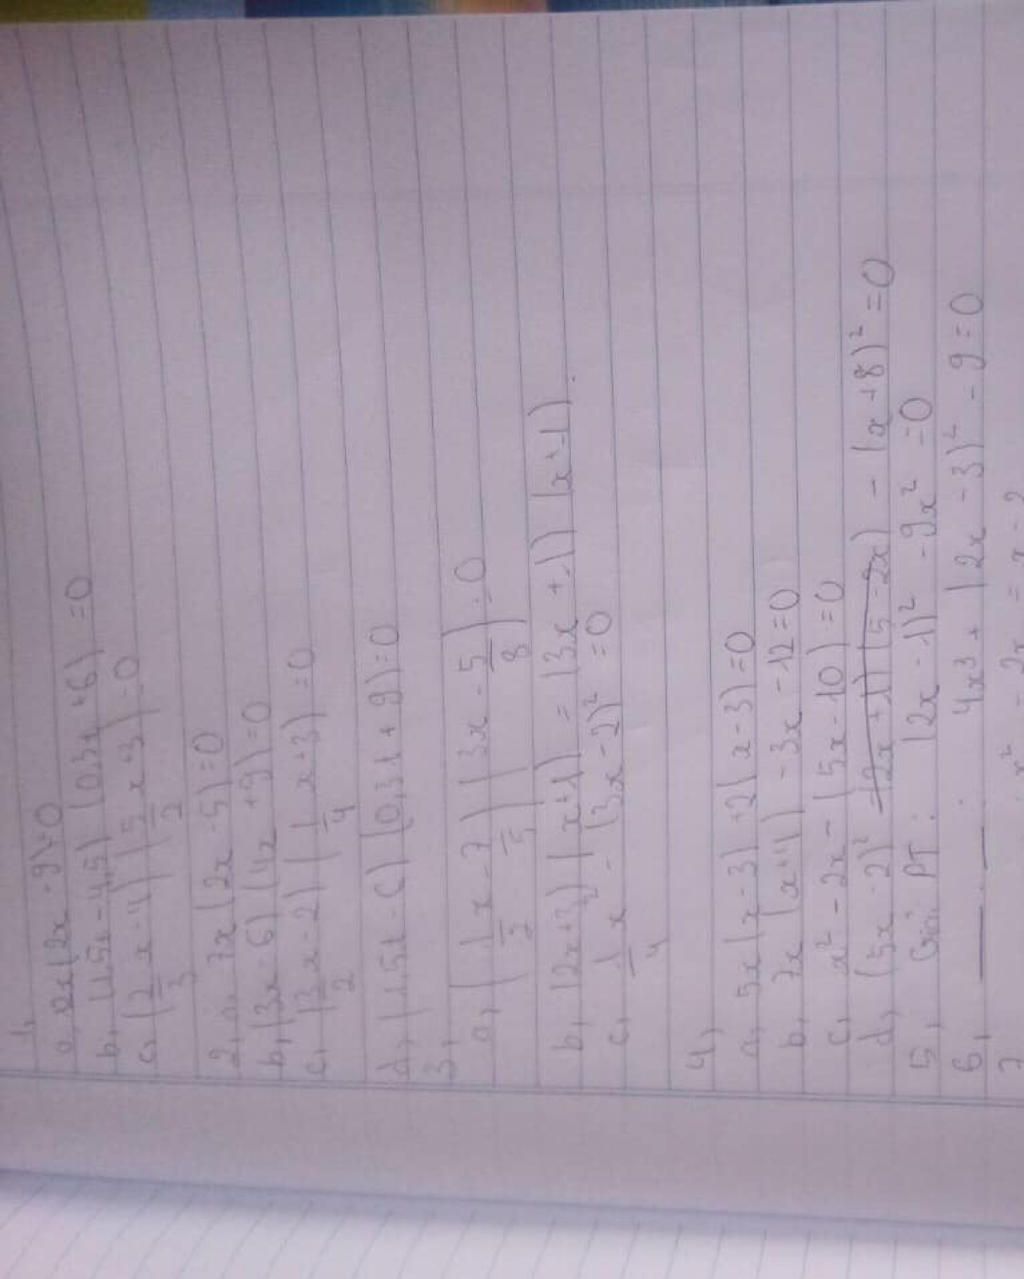 1,
a, 2x(2x - 9) = 0
b, (1,5x - 4,5) (0,3x + 6) = 0
c, (2/3 x - 4) (5/2 x + 3) = 0
2, a, 7x (2x - 5) = 0
b, (3x - 6) (4x + 9) = 0
c, (3/2 x - 2) (1/4 x + 3) = 0
d, (1,5x - 6) (0,3x + 9) = 0
3,
b, (2x + 3) (x + 1) = (3x + 1) (x + 1).
4,
a, 5x (x - 3) + 2(x - 3) = 0
b, 7x (x + 4) - 3x - 12 = 0
c, x² - 2x - (5x - 10) = 0
d, (5x - 2)² - (x + 8)² = 0
5, Giải PT: (2x - 1)² - 9x² = 0
6, : 4x3 + (2x - 3)² - 9 = 0
7